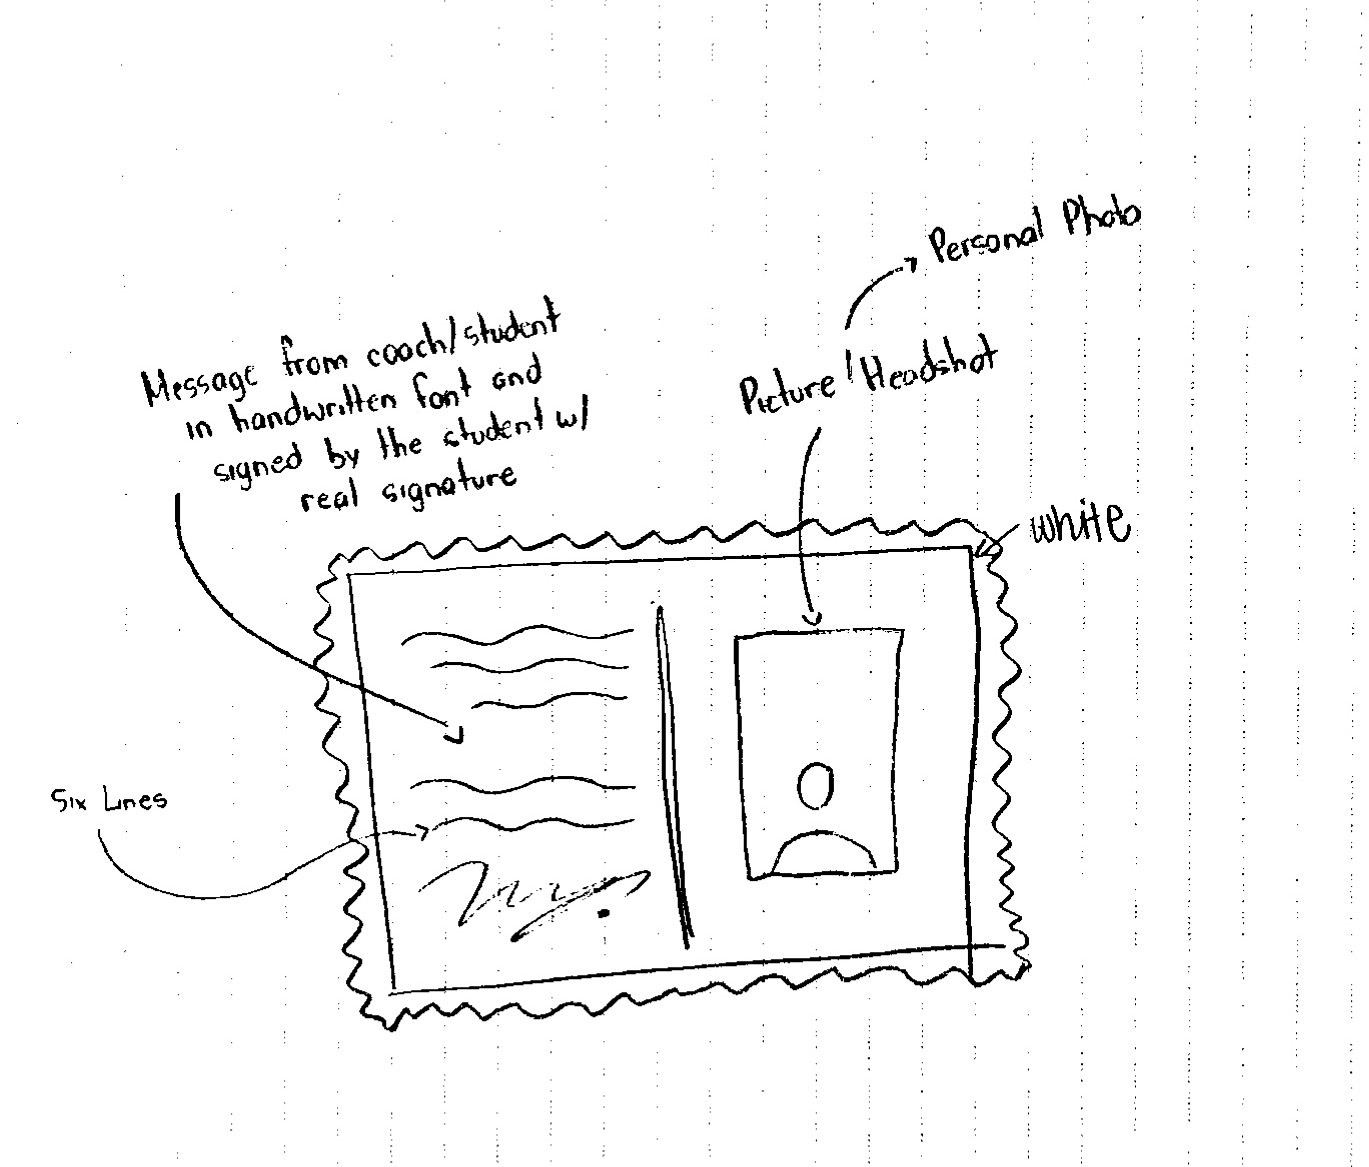 Personal Photo
Picture/Headshot
Message from coach/student
in handwritten font and
signed by the student w/
real signature
white
Six Lines